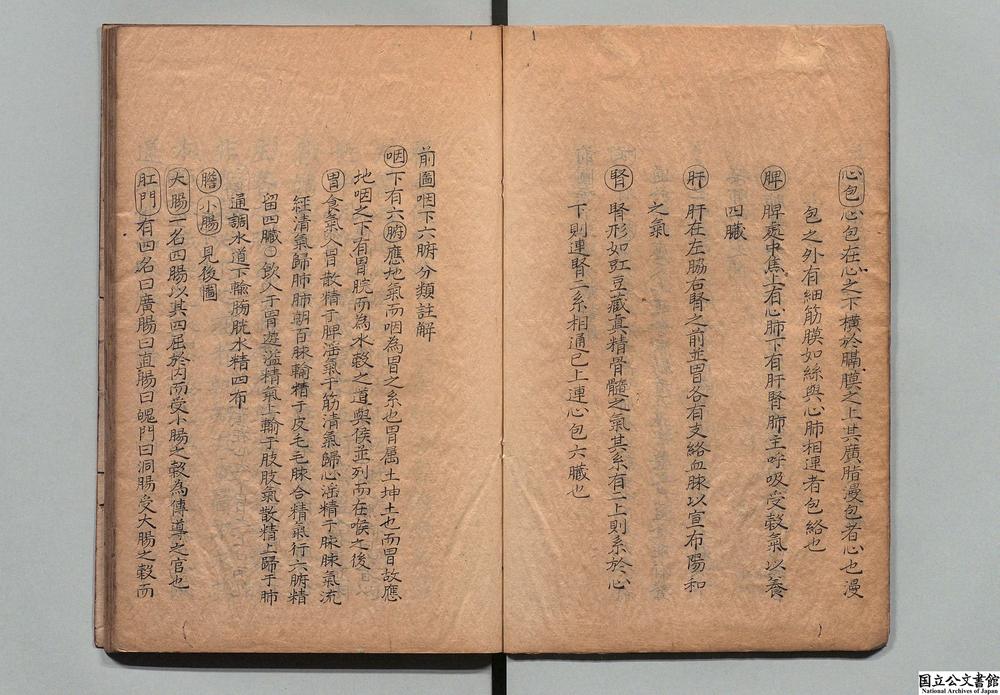 心包心包在心之下橫於膈膜之上其廣脂漫包者心也漫
包之外有細筋膜如絲與心肺相連者包絡也
脾脾處中焦上有心肺下有肝腎肺主呼吸受穀氣以養
四臟
肝肝在左脇右腎之前並胃各有支絡血脉以宣布陽和
之氣
腎腎形如豇豆藏真精骨髓之氣其系有二上則系於心
下則連腎二系相通已上連心包六臟也
前圖咽下六腑分類註解
咽下有六腑應地氣而咽為胃之系也胃屬土坤土也而胃故應
地咽之下有胃脘而為水穀之道與侯並列而在喉之後
胃食氣入胃散精于脾滛氣于筋清氣歸心滛精于脉脉氣流
経清氣歸肺肺朝百脉輸精于皮毛毛脉合精氣行六腑精
留四臟○飲入于胃遊溢精氣上輸于肢肢氣散精上歸于肺
通調水道下輸膀胱水精四布
膽小腸見後圖
大腸一名四腸以其四屈於內而受小腸之穀為傳導之官也
肛門有四名曰廣腸曰直腸曰魄門曰洞腸受大腸之穀而
国立公文書館
National Archives of Japan